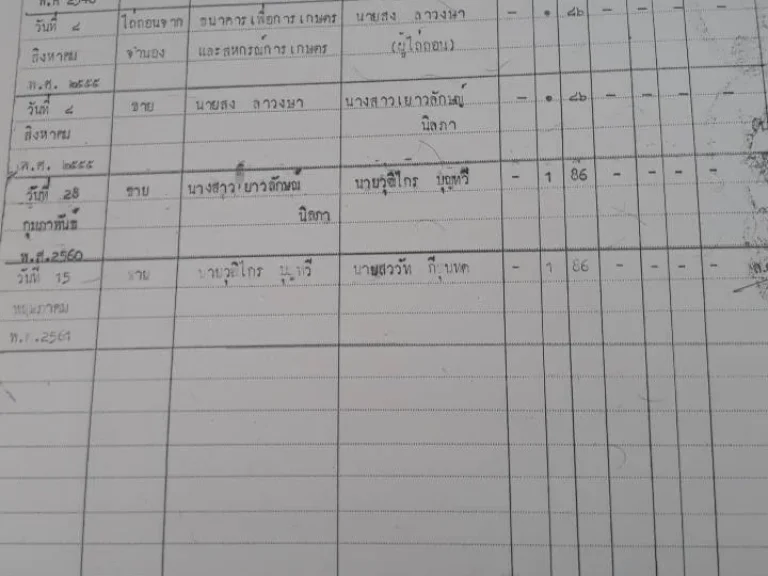 พ.ศ. 2540
วันที่ ๘ ไถ่ถอนจาก ธนาคารเพื่อการเกษตร นายสง ลาวงษา - ๑ ๘๖ - - - -
สิงหาคม จำนอง และสหกรณ์การเกษตร (ผู้ไถ่ถอน)
พ.ศ. ๒๕๕๕
วันที่ ๘ ขาย นายสง ลาวงษา นางสาวเยาวลักษณ์ - ๑ ๘๖ - - - -
สิงหาคม นิลภา
พ.ศ. ๒๕๕๕
วันที่ 28 ขาย นางสาวเยาวลักษณ์ นายวุฒิไกร บุญทวี - 1 86 - - - -
กุมภาพันธ์ นิลภา
พ.ศ.2560
วันที่ 15 ขาย นายวุฒิไกร บุญทวี - 1 86 - - - -
พฤษภาคม
พ.ศ.2561